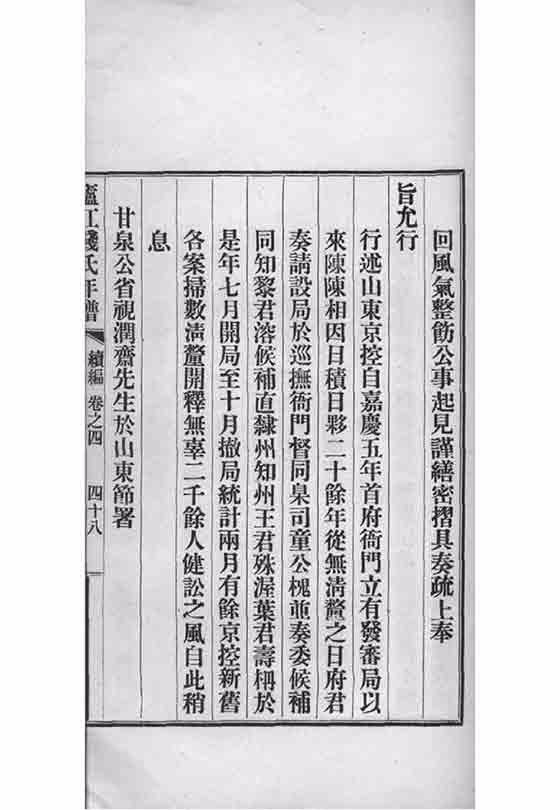 回風氣整飭公事起見謹繕密摺具奏疏上奉
旨允行
行述山東京控自嘉慶五年首府衙門立有發審局以
來陳陳相因日積日夥二十餘年從無清釐之日府君
奏請設局於巡撫衙門督同臬司童公槐並奏委候補
同知黎君溶候補直隸州知州王君殊渥葉君壽枬於
是年七月開局至十月撤局統計兩月有餘京控新舊
各案掃數清釐開釋無辜二千餘人健訟之風自此稍
息
甘泉公省視潤齋先生於山東節署
廬江錢氏年譜 續編 卷之四 四十八